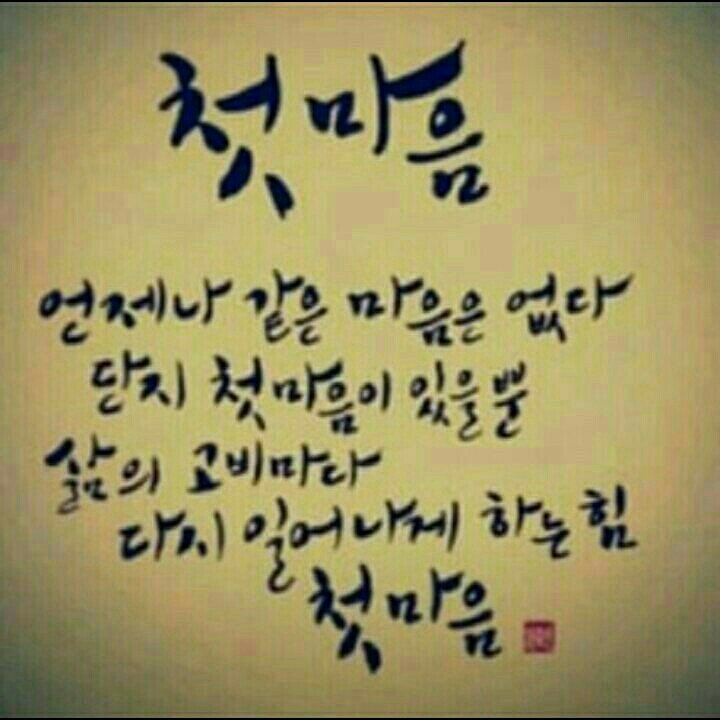 첫마음
언제나 같은 마음은 없다
단지 첫마음이 있을뿐
삶의 고비마다
다시 일어나게 하는 힘
첫마음